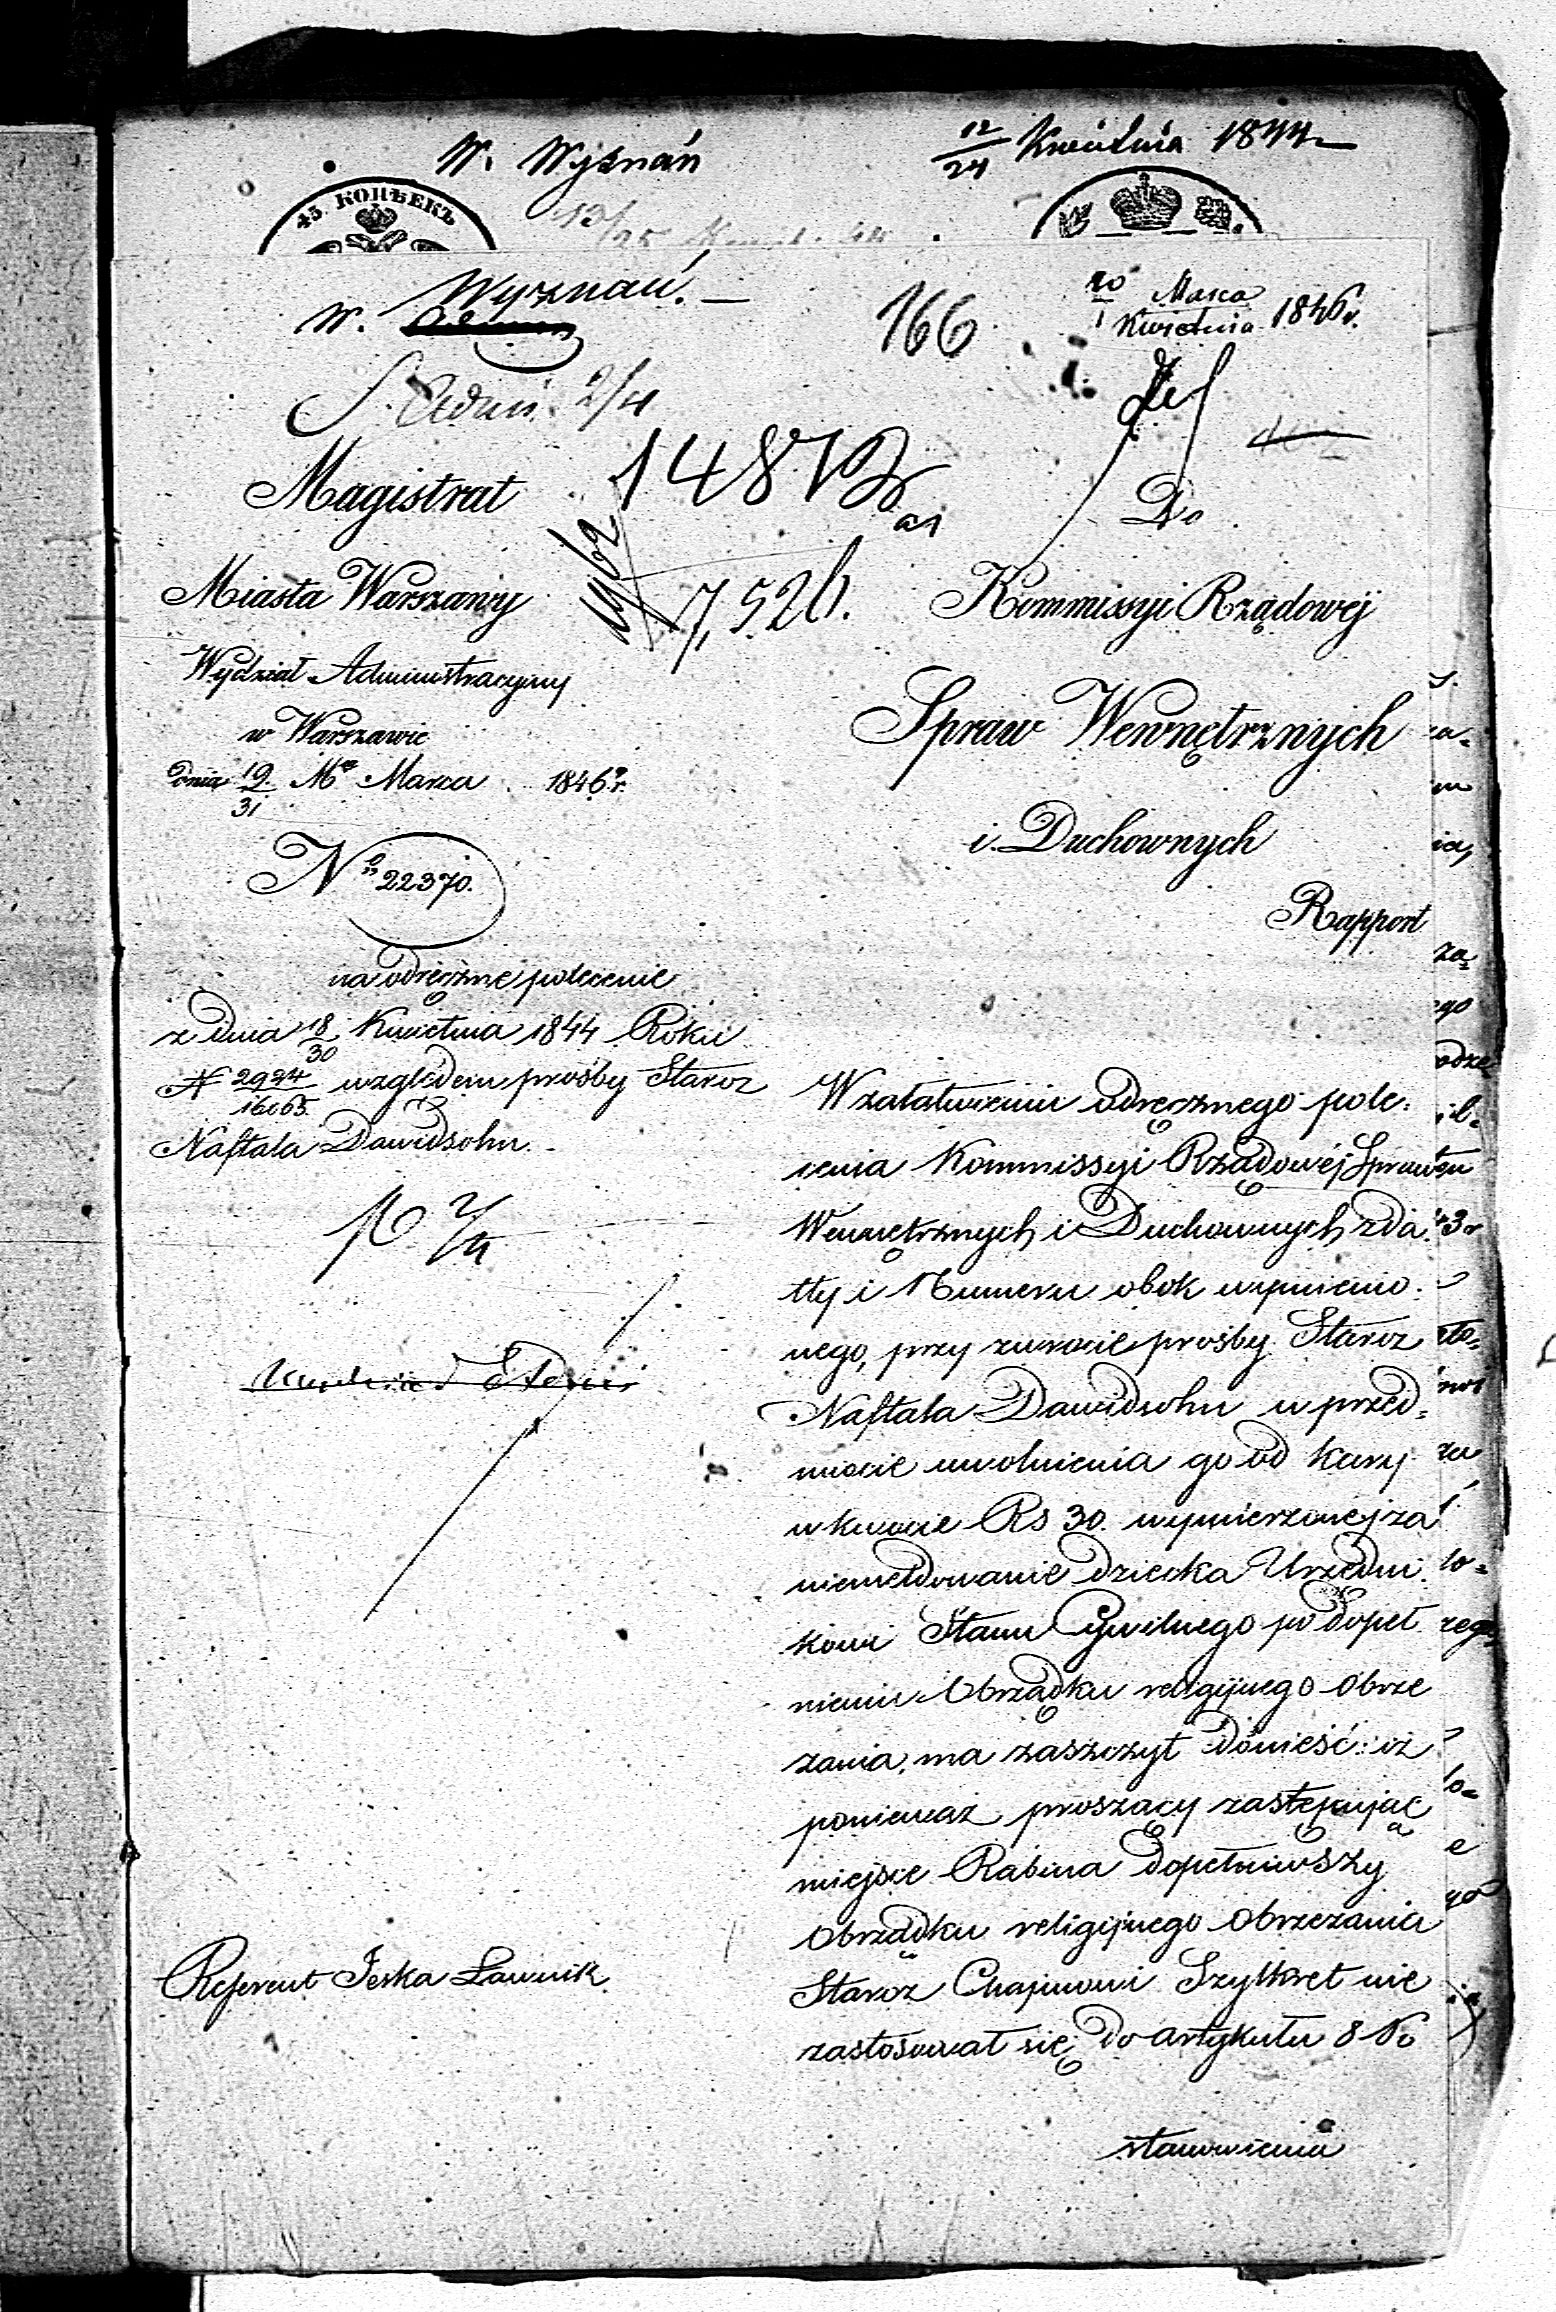 W. Wyznań
12/24 Kwietnia 1844
45. КОПѢЕКЪ
W. Wyznań. —
166
20 Marca
1 Kwietnia 1846 r.
2/4
Magistrat
148
Do
Miasta Warszawy
7,526.
Kommissyi Rządowéj
Wydział Administracyjny
Spraw Wewnętrznych
w Warszawie
dnia 19/31 Mca Marca 1846 r.
i Duchownych
No 22370.
Rapport
na odręczne polecenie
z dnia 18/30 Kwietnia 1844 Roku
N 2924/16165 względem prośby Staroz
Naftala Dawidsohn.
W załatwieniu odręcznego pole-
cenia Kommissyi Rządowéj Spraw
Wewnętrznych i Duchownych z da
tty i Numeru obok wymienio-
nego, przy zwrocie prośby Staroz
Naftala Dawidsohn w przed-
miocie uwolnienia go od kary
w kwocie Rs 30. wymierzonej za
niemeldowanie dziecka Urzędni
kowi Stanu Cywilnego po dopeł
nieniu Obrządku religijnego Obrze
zania, ma zaszczyt donieść: iż
ponieważ proszący zastępując
miejsce Rabina dopełniwszy
Obrządku religijnego Obrzezania
Staroz Chajmowi Szylkret nie
zastosował się do artykułu 8 Po
stanowienia
Referent Jeska Ławnik